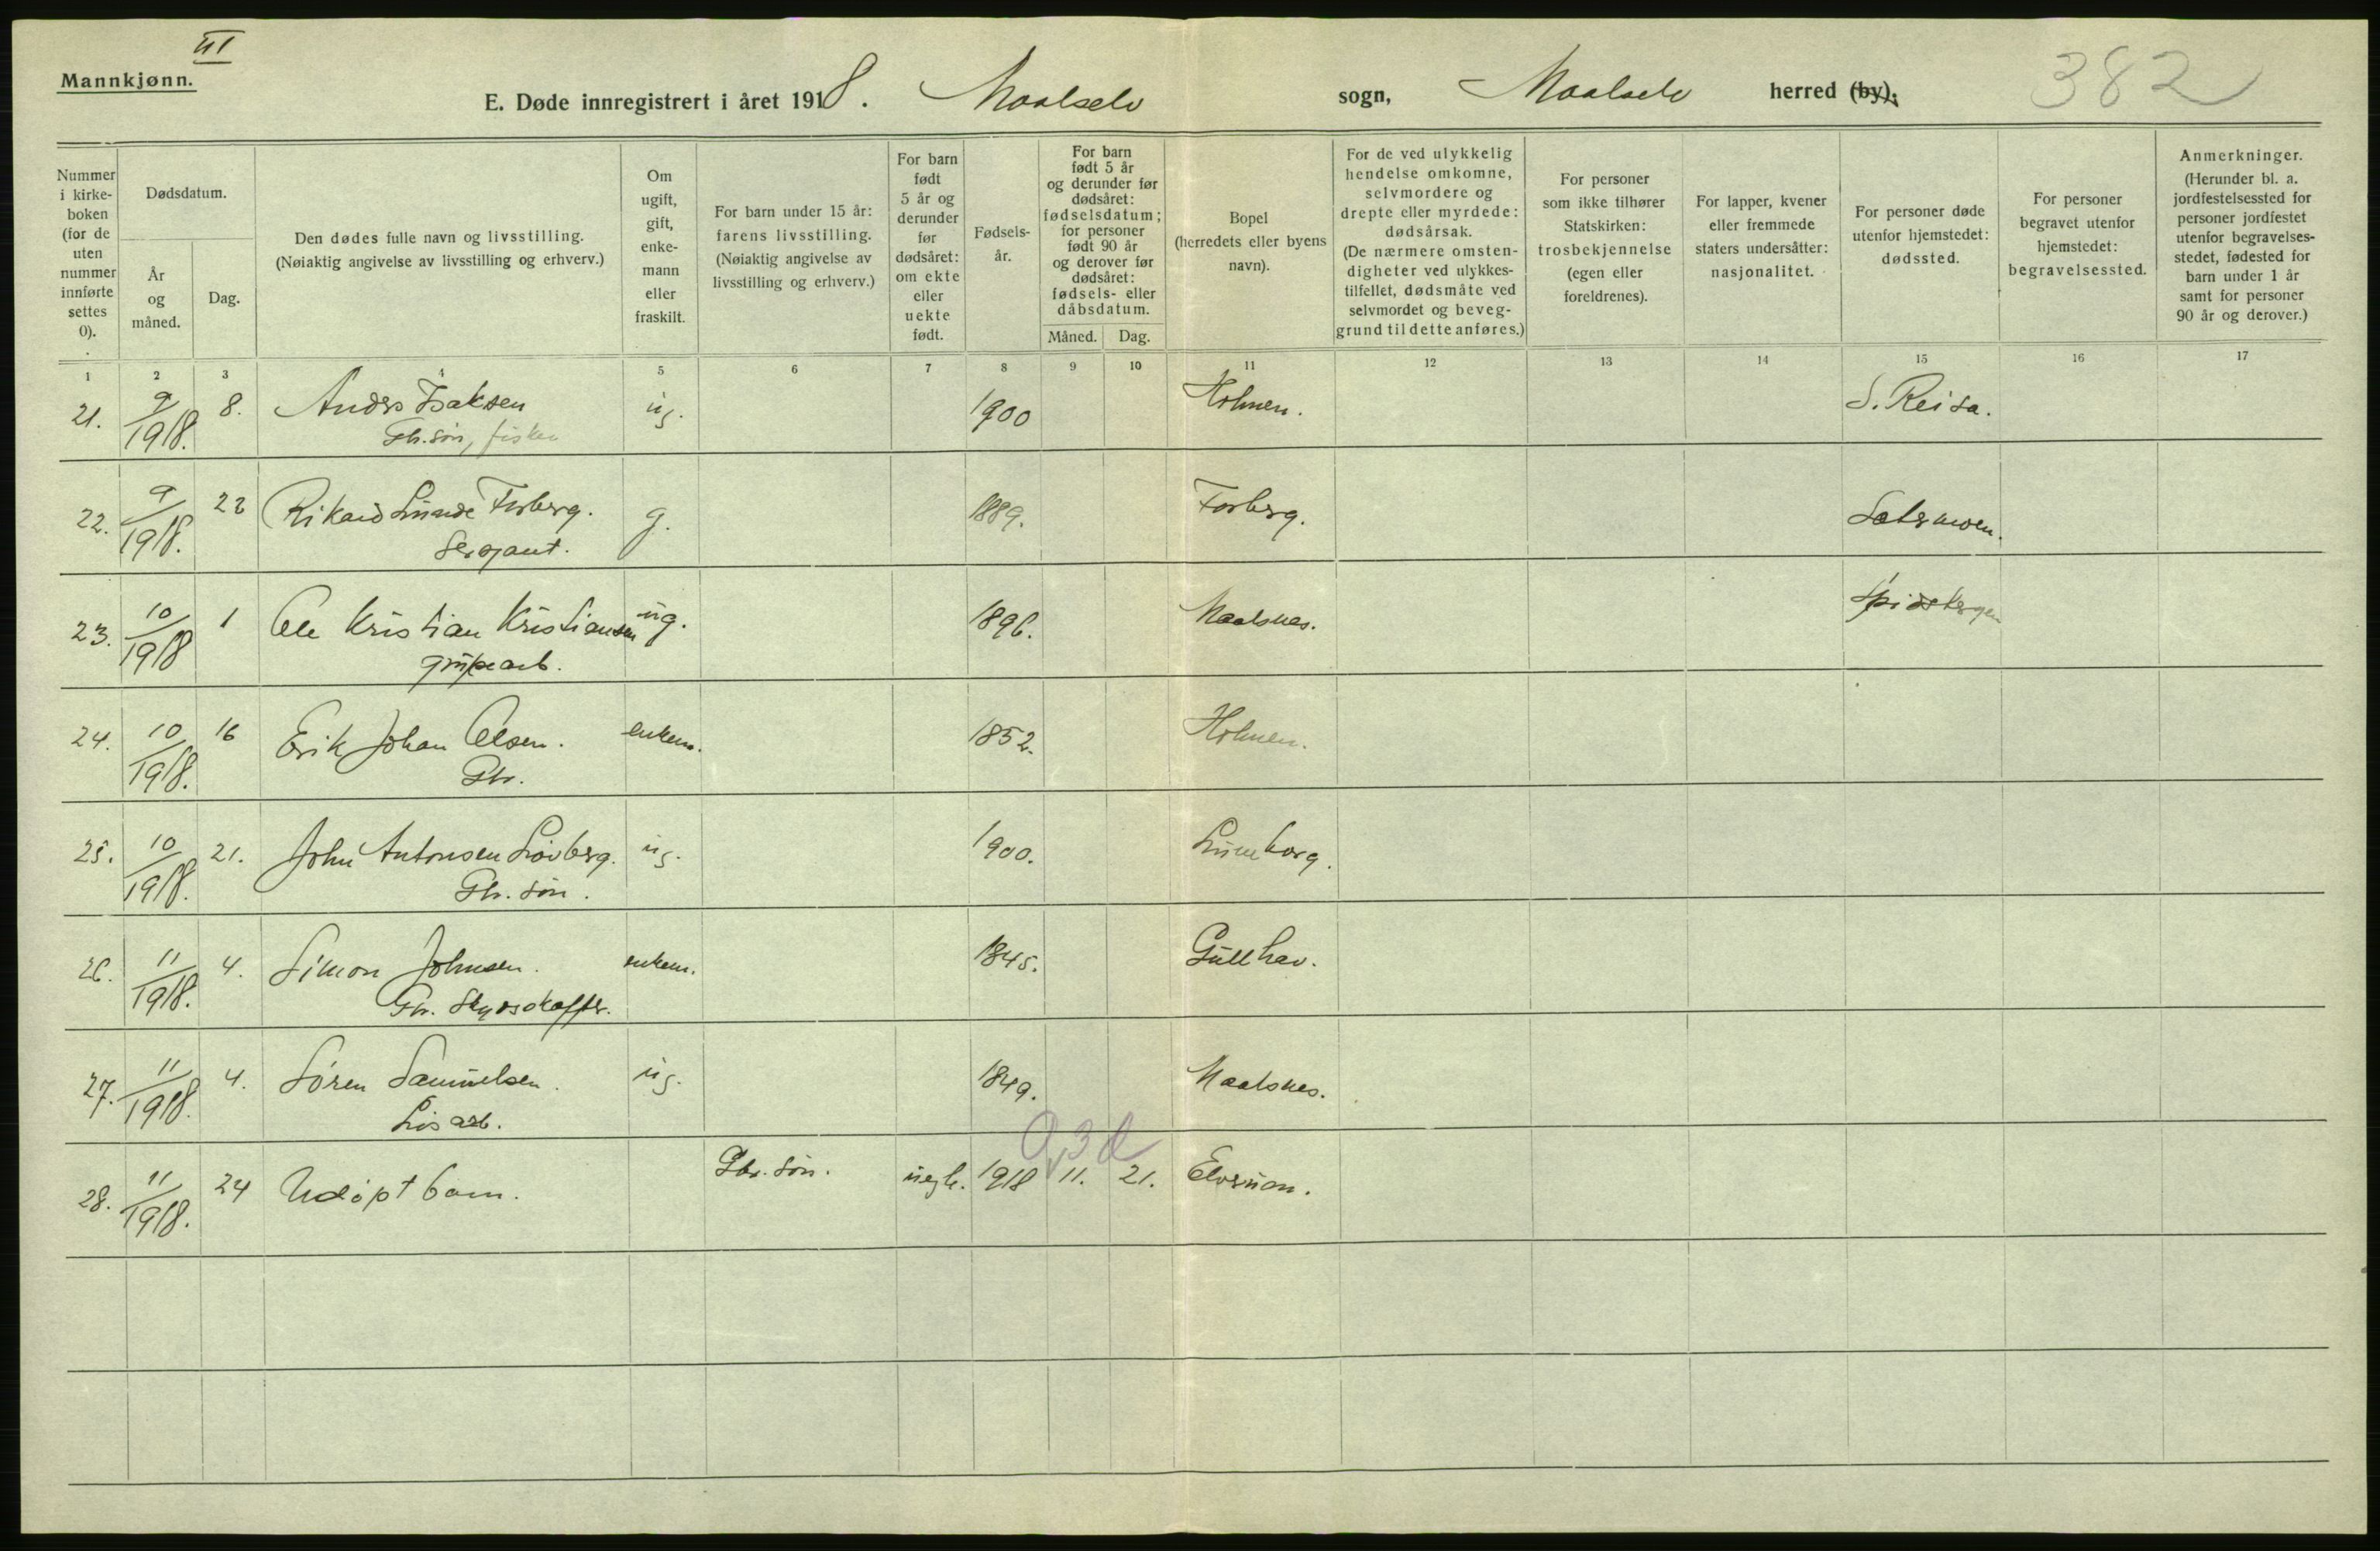 III
Mannkjønn.
E. Døde innregistrert i året 1918. Maalselv sogn, Maalselv herred (by). 382
Nummer i kirkeboken (for de uten nummer innførte settes 0).
Dødsdatum.
År og måned.
Dag.
Den dødes fulle navn og livsstilling.
(Nøiaktig angivelse av livsstilling og erhverv.)
Om ugift, gift, enkemann eller fraskilt.
For barn under 15 år: farens livsstilling.
(Nøiaktig angivelse av livsstilling og erhverv.)
For barn født 5 år og derunder før dødsåret: om ekte eller uekte født.
Fødselsår.
For barn født 5 år og derunder før dødsåret: fødselsdatum; for personer født 90 år og derover før dødsåret: fødsels- eller dåbsdatum.
Måned. Dag.
Bopel (herredets eller byens navn).
For de ved ulykkelig hendelse omkomne, selvmordere og drepte eller myrdede: dødsårsak.
(De nærmere omstendigheter ved ulykkestilfellet, dødsmåte ved selvmordet og beveggrund til dette anføres.)
For personer som ikke tilhører Statskirken: trosbekjennelse (egen eller foreldrenes).
For lapper, kvener eller fremmede staters undersåtter: nasjonalitet.
For personer døde utenfor hjemstedet: dødssted.
For personer begravet utenfor hjemstedet: begravelsessted.
Anmerkninger.
(Herunder bl. a. jordfestelsessted for personer jordfestet utenfor begravelsesstedet, fødested for barn under 1 år samt for personer 90 år og derover.)
1 2 3 4 5 6 7 8 9 10 11 12 13 14 15 16 17
21. 9/1918. 8. Anders Isaksen ug. 1900 Holmen. S. Reisa.
Gbr. søn, fisker
22. 9/1918. 22 Rikard Lunde Fosberg. g. 1889. Fosberg. Sætermoen.
Sergjant.
23. 10/1918 1 Ole Kristian Kristiansen ug. 1896. Maalsnes. Spidsbergen
grubearb.
24. 10/1918. 16 Erik Johan Olsen. enkem. 1852. Holmen.
Gbr.
25. 10/1918. 21. John Antonsen Løvberg. ug. 1900. Luneborg.
Gbr. søn.
26. 11/1918. 4. Simon Johnsen. enkem. 1845. Gullhav.
Gbr. Skydsskaffer.
27. 11/1918. 4. Søren Samuelsen. ug. 1849. Maalsnes.
Løsarb.
0,3 d
28. 11/1918. 24 Udøpt barn. Gbr. søn. uegte. 1918 11. 21. Elvemon.